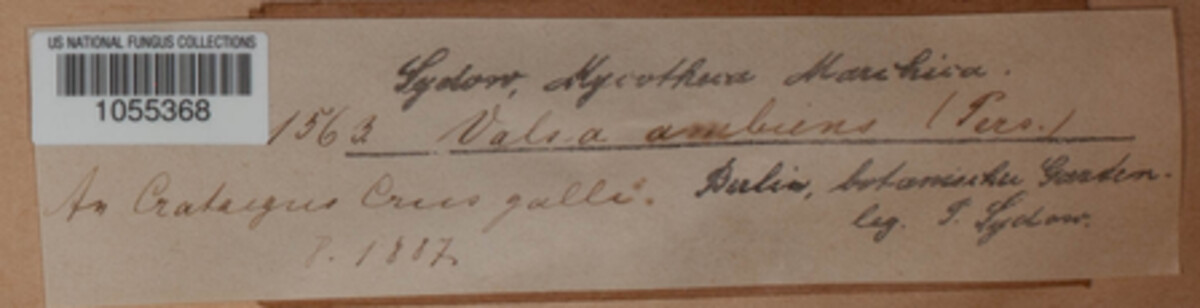 US NATIONAL FUNGUS COLLECTIONS
1055368
Sydow, Mycotheca Marchica.
1563 Valsa ambiens (Pers.)
An Crataegus Crus galli.
Berlin, botanischer Garten.
leg. P. Sydow.
P. 1887.